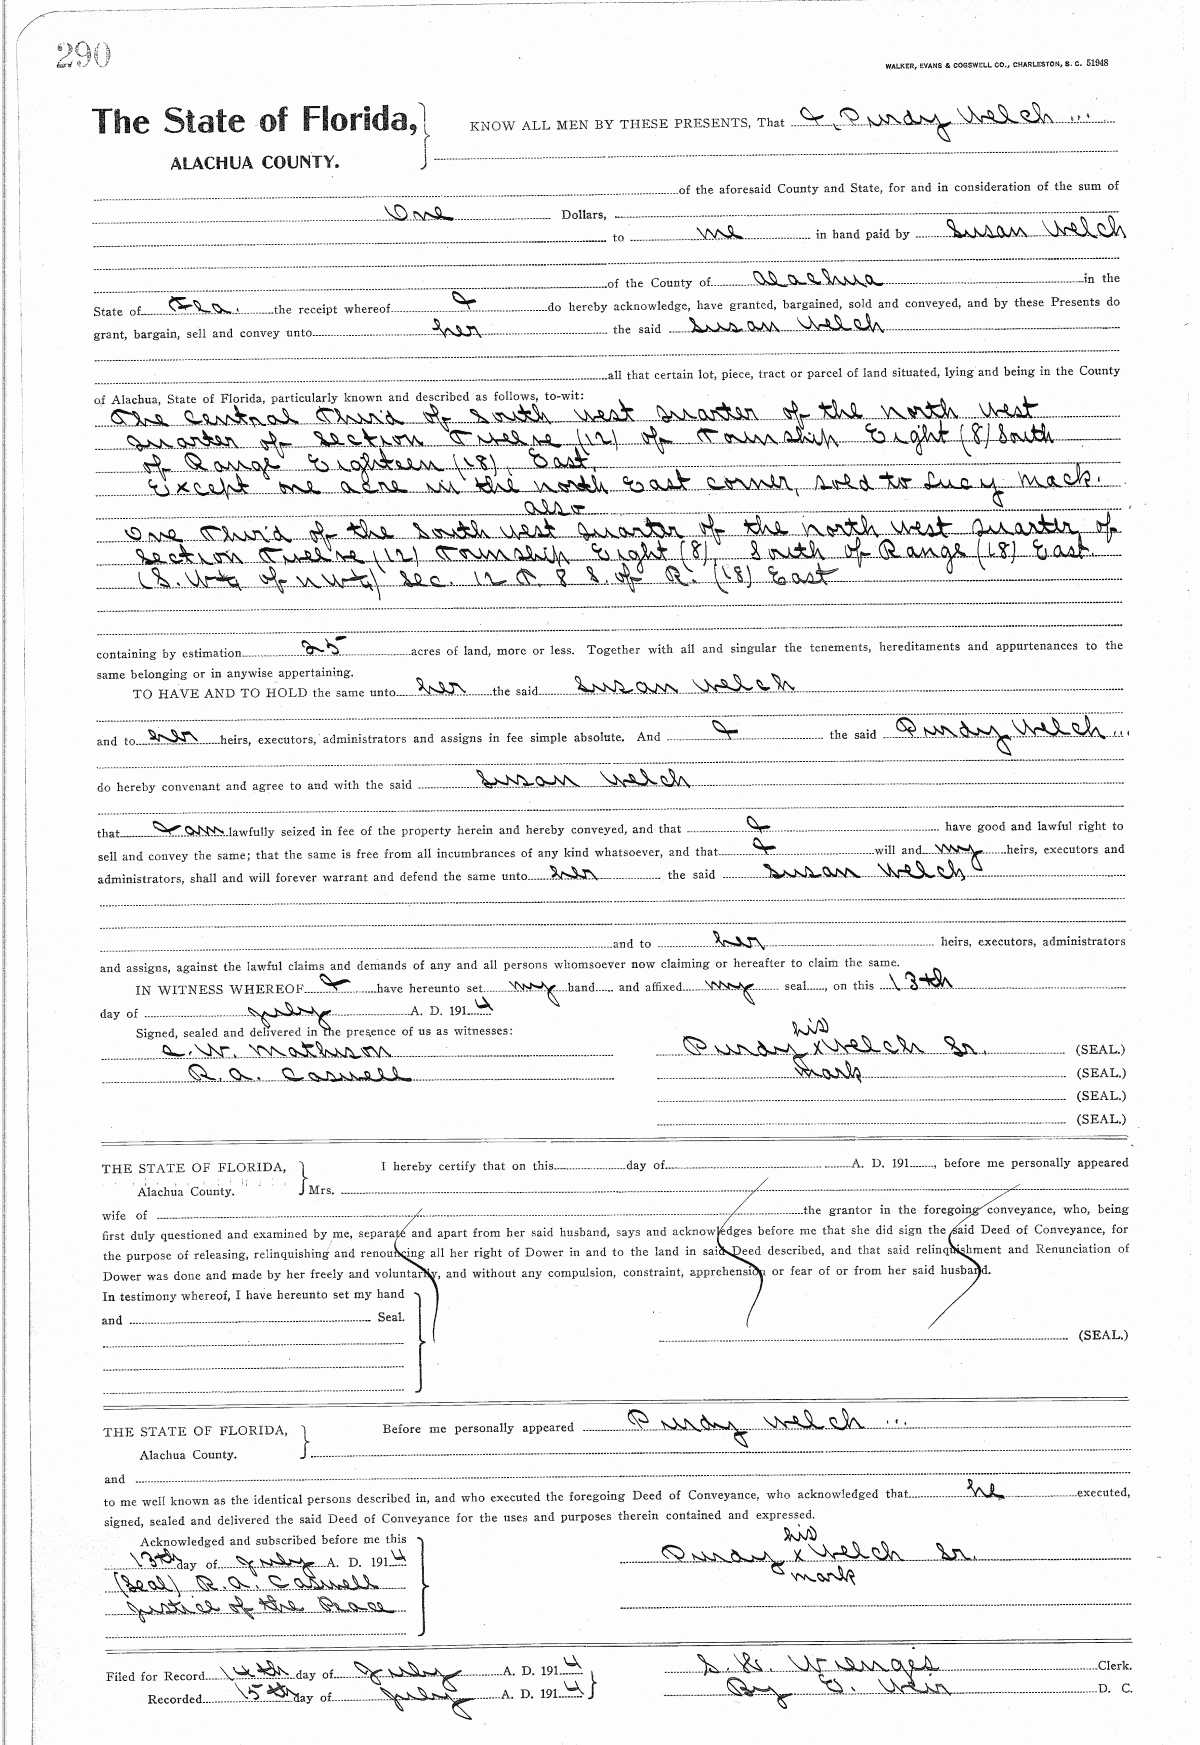 290
WALKER, EVANS & COGSWELL CO., CHARLESTON, S. C. 51948
The State of Florida,
ALACHUA COUNTY.
KNOW ALL MEN BY THESE PRESENTS, That I, Purdy Welch ...
of the aforesaid County and State, for and in consideration of the sum of
One Dollars,
to me in hand paid by Susan Welch
of the County of Alachua in the
State of Fla. the receipt whereof I do hereby acknowledge, have granted, bargained, sold and conveyed, and by these Presents do
grant, bargain, sell and convey unto her the said Susan Welch
all that certain lot, piece, tract or parcel of land situated, lying and being in the County
of Alachua, State of Florida, particularly known and described as follows, to-wit:
The Central Third of South West Quarter of the North West
Quarter of Section Twelve (12) of Township Eight (8) South
of Range Eighteen (18), East.
Except one acre in the North East corner, sold to Lucy Mack.
also
One Third of the South West Quarter of the North West Quarter of
Section Twelve (12) Township Eight (8) South of Range (18) East.
(S. W¼ of N W¼) Sec. 12 T. 8 S. of R. (18) East
containing by estimation 25 acres of land, more or less. Together with all and singular the tenements, hereditaments and appurtenances to the
same belonging or in anywise appertaining.
TO HAVE AND TO HOLD the same unto her the said Susan Welch
and to her heirs, executors, administrators and assigns in fee simple absolute. And I the said Purdy Welch ...
do hereby convenant and agree to and with the said Susan Welch
that I am lawfully seized in fee of the property herein and hereby conveyed, and that I have good and lawful right to
sell and convey the same; that the same is free from all incumbrances of any kind whatsoever, and that I will and my heirs, executors and
administrators, shall and will forever warrant and defend the same unto her the said Susan Welch
and to her heirs, executors, administrators
and assigns, against the lawful claims and demands of any and all persons whomsoever now claiming or hereafter to claim the same.
IN WITNESS WHEREOF I have hereunto set my hand and affixed my seal, on this 13th
day of July A. D. 1914
Signed, sealed and delivered in the presence of us as witnesses:
his
C. W. Mathison Purdy x Welch Sr. (SEAL.)
R. A. Caswell mark (SEAL.)
(SEAL.)
(SEAL.)
THE STATE OF FLORIDA,
Alachua County.
I hereby certify that on this day of A. D. 191 , before me personally appeared
Mrs.
wife of the grantor in the foregoing conveyance, who, being
first duly questioned and examined by me, separate and apart from her said husband, says and acknowledges before me that she did sign the said Deed of Conveyance, for
the purpose of releasing, relinquishing and renouncing all her right of Dower in and to the land in said Deed described, and that said relinquishment and Renunciation of
Dower was done and made by her freely and voluntarily, and without any compulsion, constraint, apprehension or fear of or from her said husband.
In testimony whereof, I have hereunto set my hand
and Seal.
(SEAL.)
THE STATE OF FLORIDA,
Alachua County.
Before me personally appeared Purdy Welch ...
and
to me well known as the identical persons described in, and who executed the foregoing Deed of Conveyance, who acknowledged that he executed,
signed, sealed and delivered the said Deed of Conveyance for the uses and purposes therein contained and expressed.
Acknowledged and subscribed before me this
13th day of July A. D. 1914
(Seal) R. A. Caswell
Justice of the Peace
his
Purdy x Welch Sr.
mark
Filed for Record 14th day of July A. D. 1914
Recorded 15th day of July A. D. 1914
S. H. Wienges Clerk.
By D. C.